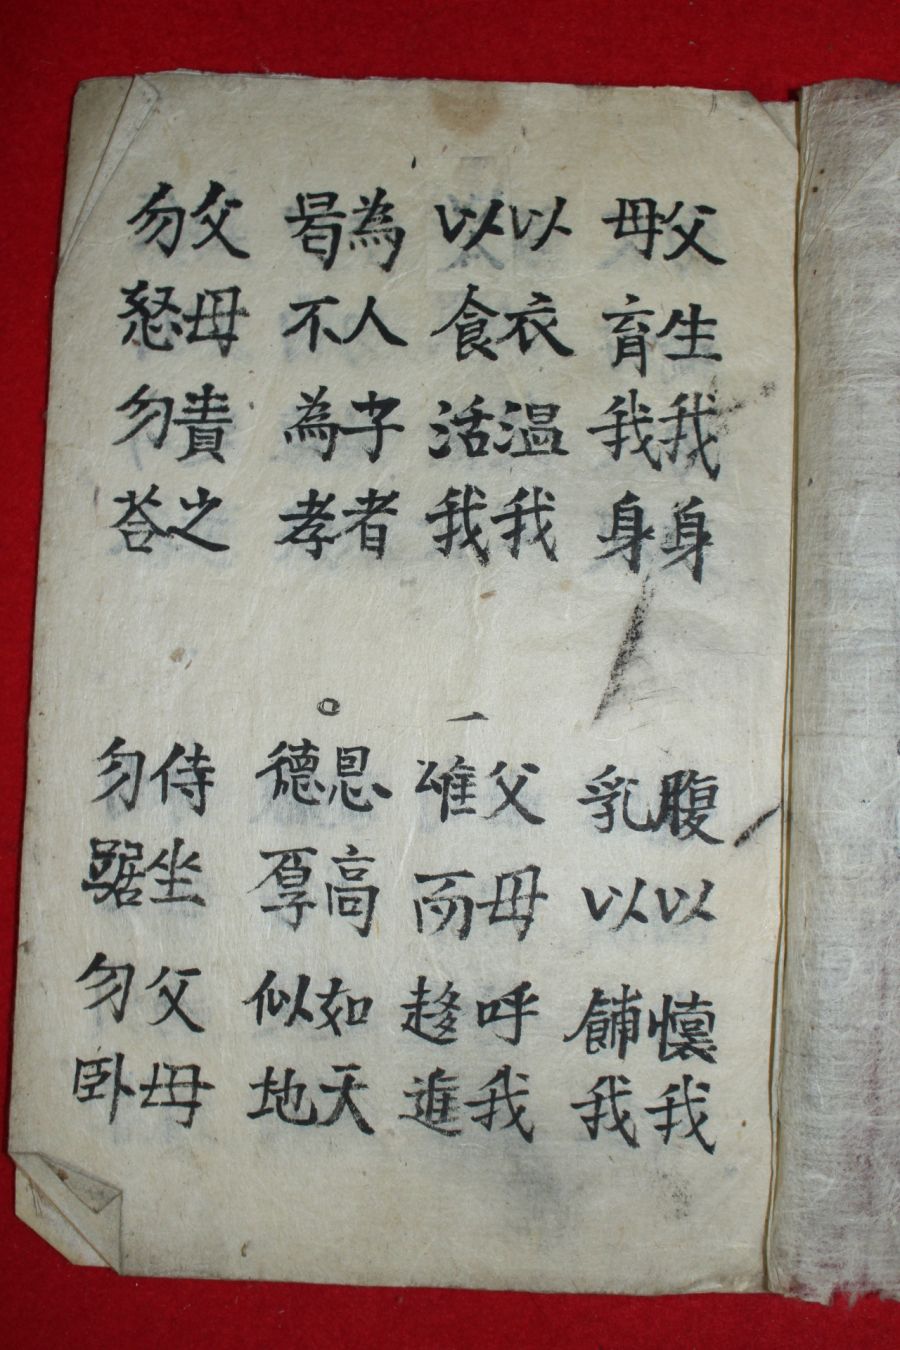 父生我身
母育我身
腹以懷我
乳以餔我
以衣温我
以食活我
一
父母呼我
唯而趍進
為人子者
曷不為孝
○
恩高如天
德厚似地
父母責之
勿怒勿荅
侍坐父母
勿踞勿卧